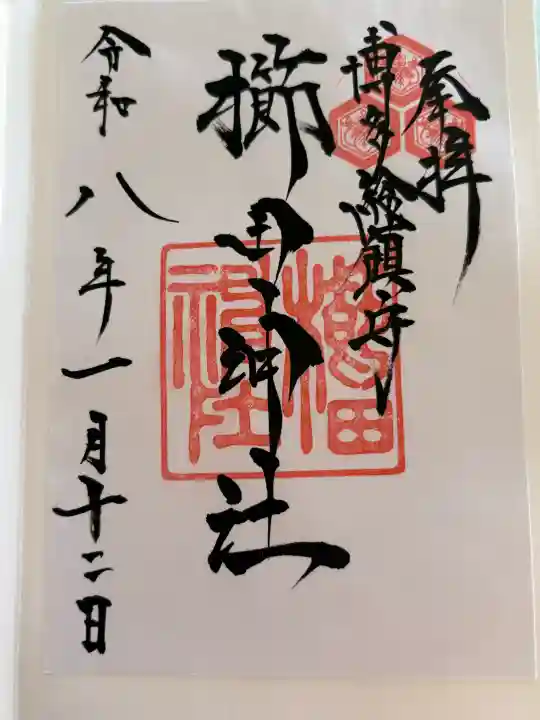 奉拝
博多総鎮守
櫛田神社
櫛田神社
令和八年一月十二日